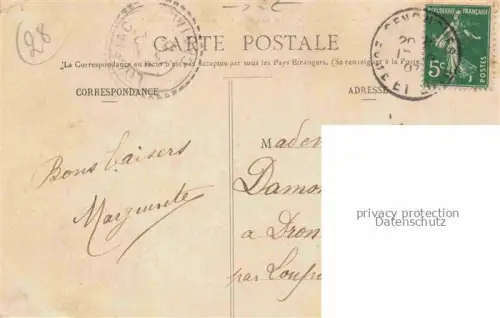 28
CARTE POSTALE
(La Correspondance au recto n'est pas acceptée par tous les Pays Étrangers. (Se renseigner à la Poste
CORRESPONDANCE
ADRESSE
RÉPUBLIQUE FRANÇAISE
5c
POSTES
Bons baisers
Marguerite
Made
Damo
a Dron
par Loup
privacy protection
Datenschutz